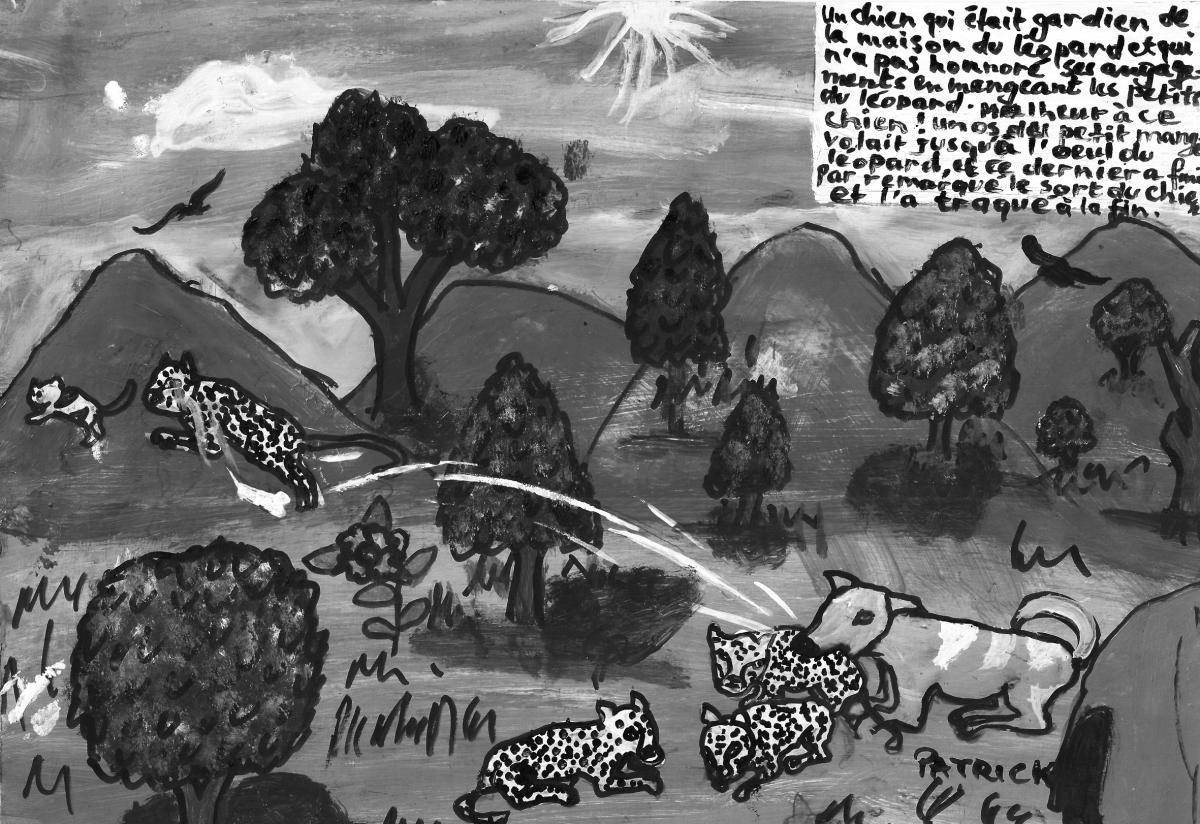 Un chien qui était gardien de
la maison du léopard et qui
n'a pas honnoré ses angage-
ments en mangeant les petits
du léopard. Malheur à ce
chien ! un os des petit mang
volait jusqu'à l'oeul du
léopard, et ce dernier a fini
par remarque le sort du chien
et l'a traqué à la fin.
PATRICK